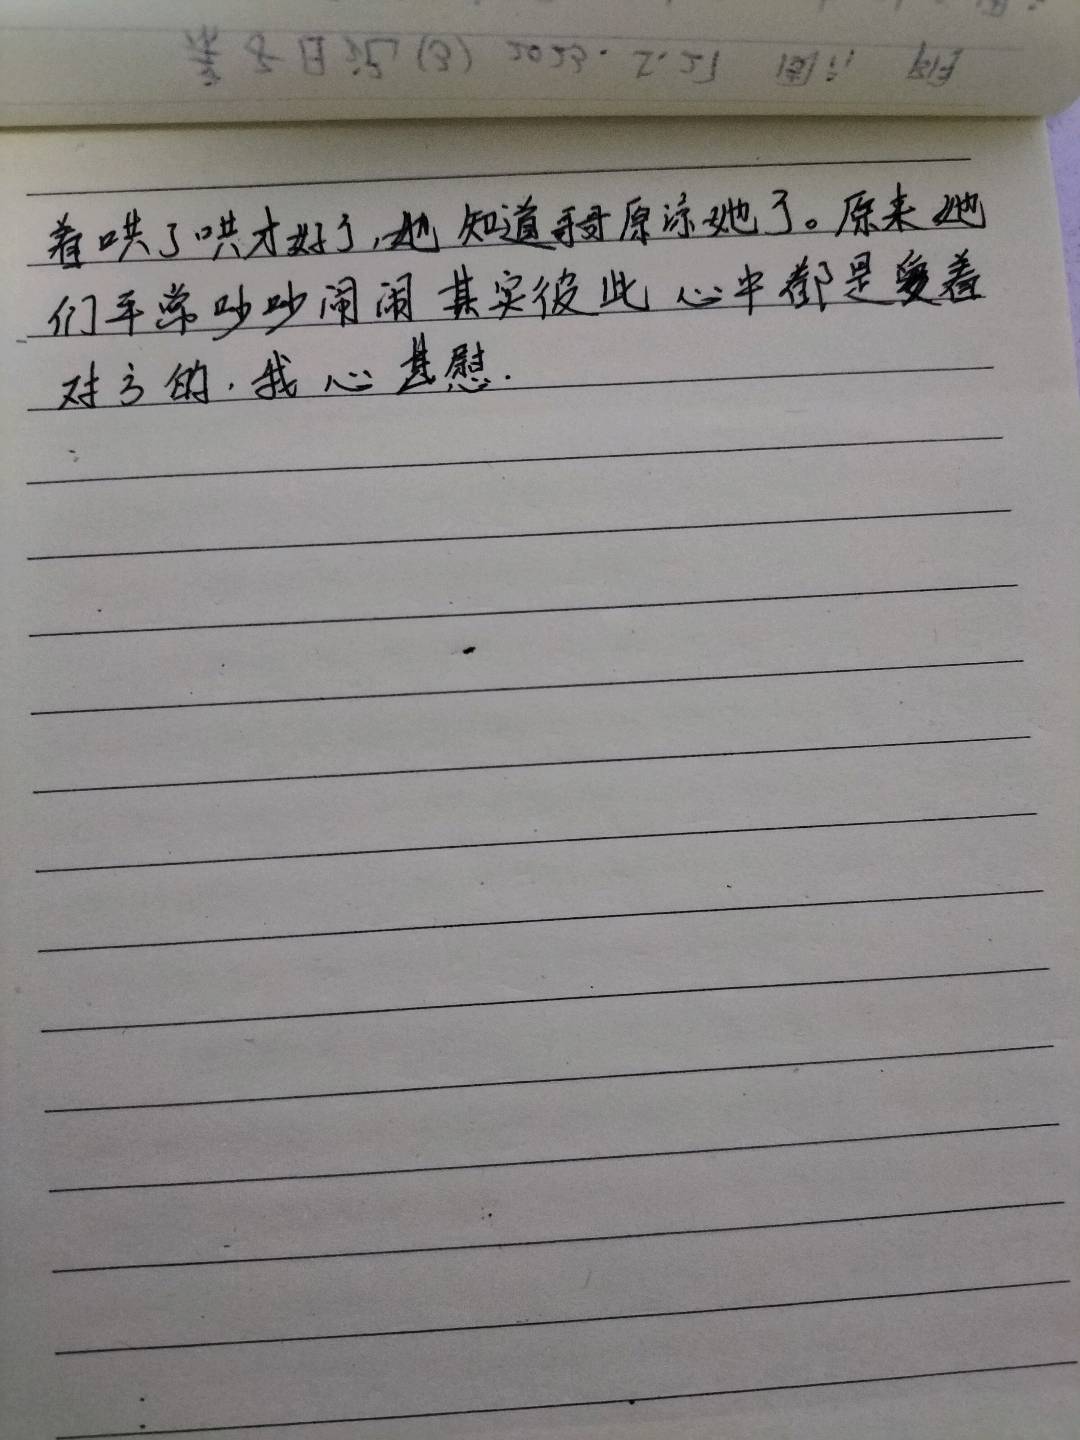 着哄了哄才好了,她知道哥哥原谅她了。原来她
们平常吵吵闹闹其实彼此心中都是爱着
对方的,我心甚慰.